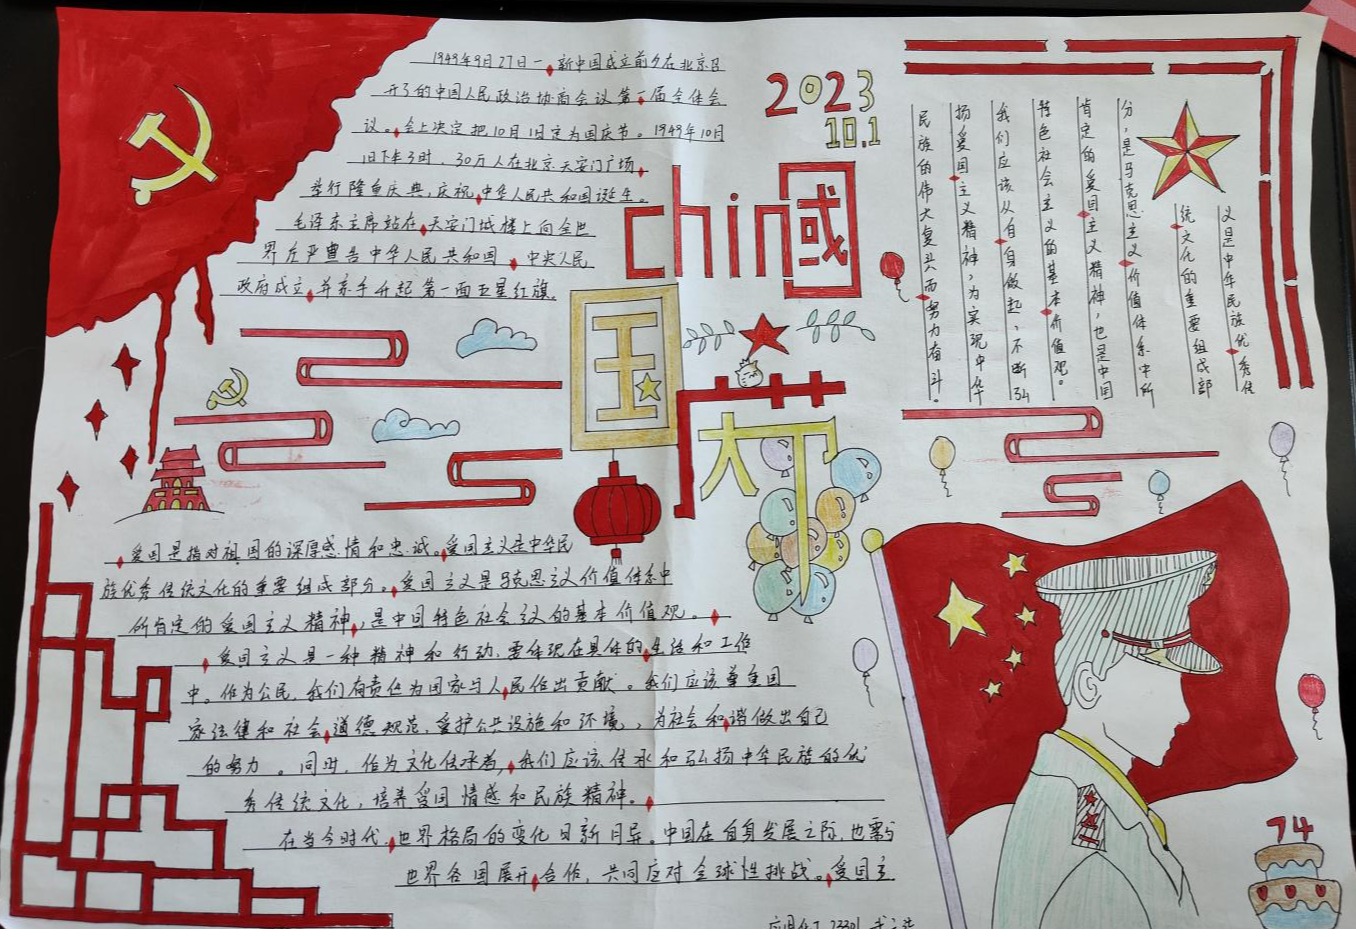 1949年9月27日，新中国成立前夕在北京召
开了的中国人民政治协商会议第一届全体会
议。会上决定把10月1日定为国庆节。1949年10月
1日下午3时，30万人在北京天安门广场
举行隆重庆典，庆祝中华人民共和国诞生。
毛泽东主席站在天安门城楼上向全世
界庄严宣告中华人民共和国，中央人民
政府成立，并亲手升起第一面五星红旗。
2023
10.1
chin國
国庆节
爱国是指对祖国的深厚感情和忠诚。爱国主义是中华民
族优秀传统文化的重要组成部分。爱国主义是马克思主义价值体系中
所肯定的爱国主义精神，是中国特色社会主义的基本价值观。
爱国主义是一种精神和行动，要体现在具体的生活和工作
中。作为公民，我们有责任为国家与人民作出贡献。我们应该尊重国
家法律和社会道德规范，爱护公共设施和环境，为社会和谐做出自己
的努力。同时，作为文化传承者，我们应该传承和弘扬中华民族的优
秀传统文化，培养爱国情感和民族精神。
在当今时代，世界格局的变化日新月异。中国在自身发展之际，也需与
世界各国展开合作，共同应对全球性挑战。爱国主
义是中华民族优秀传
统文化的重要组成部
分，是马克思主义价值体系中所
肯定的爱国主义精神，也是中国
特色社会主义的基本价值观。
我们应该从自身做起，不断弘
扬爱国主义精神，为实现中华
民族的伟大复兴而努力奋斗。
74